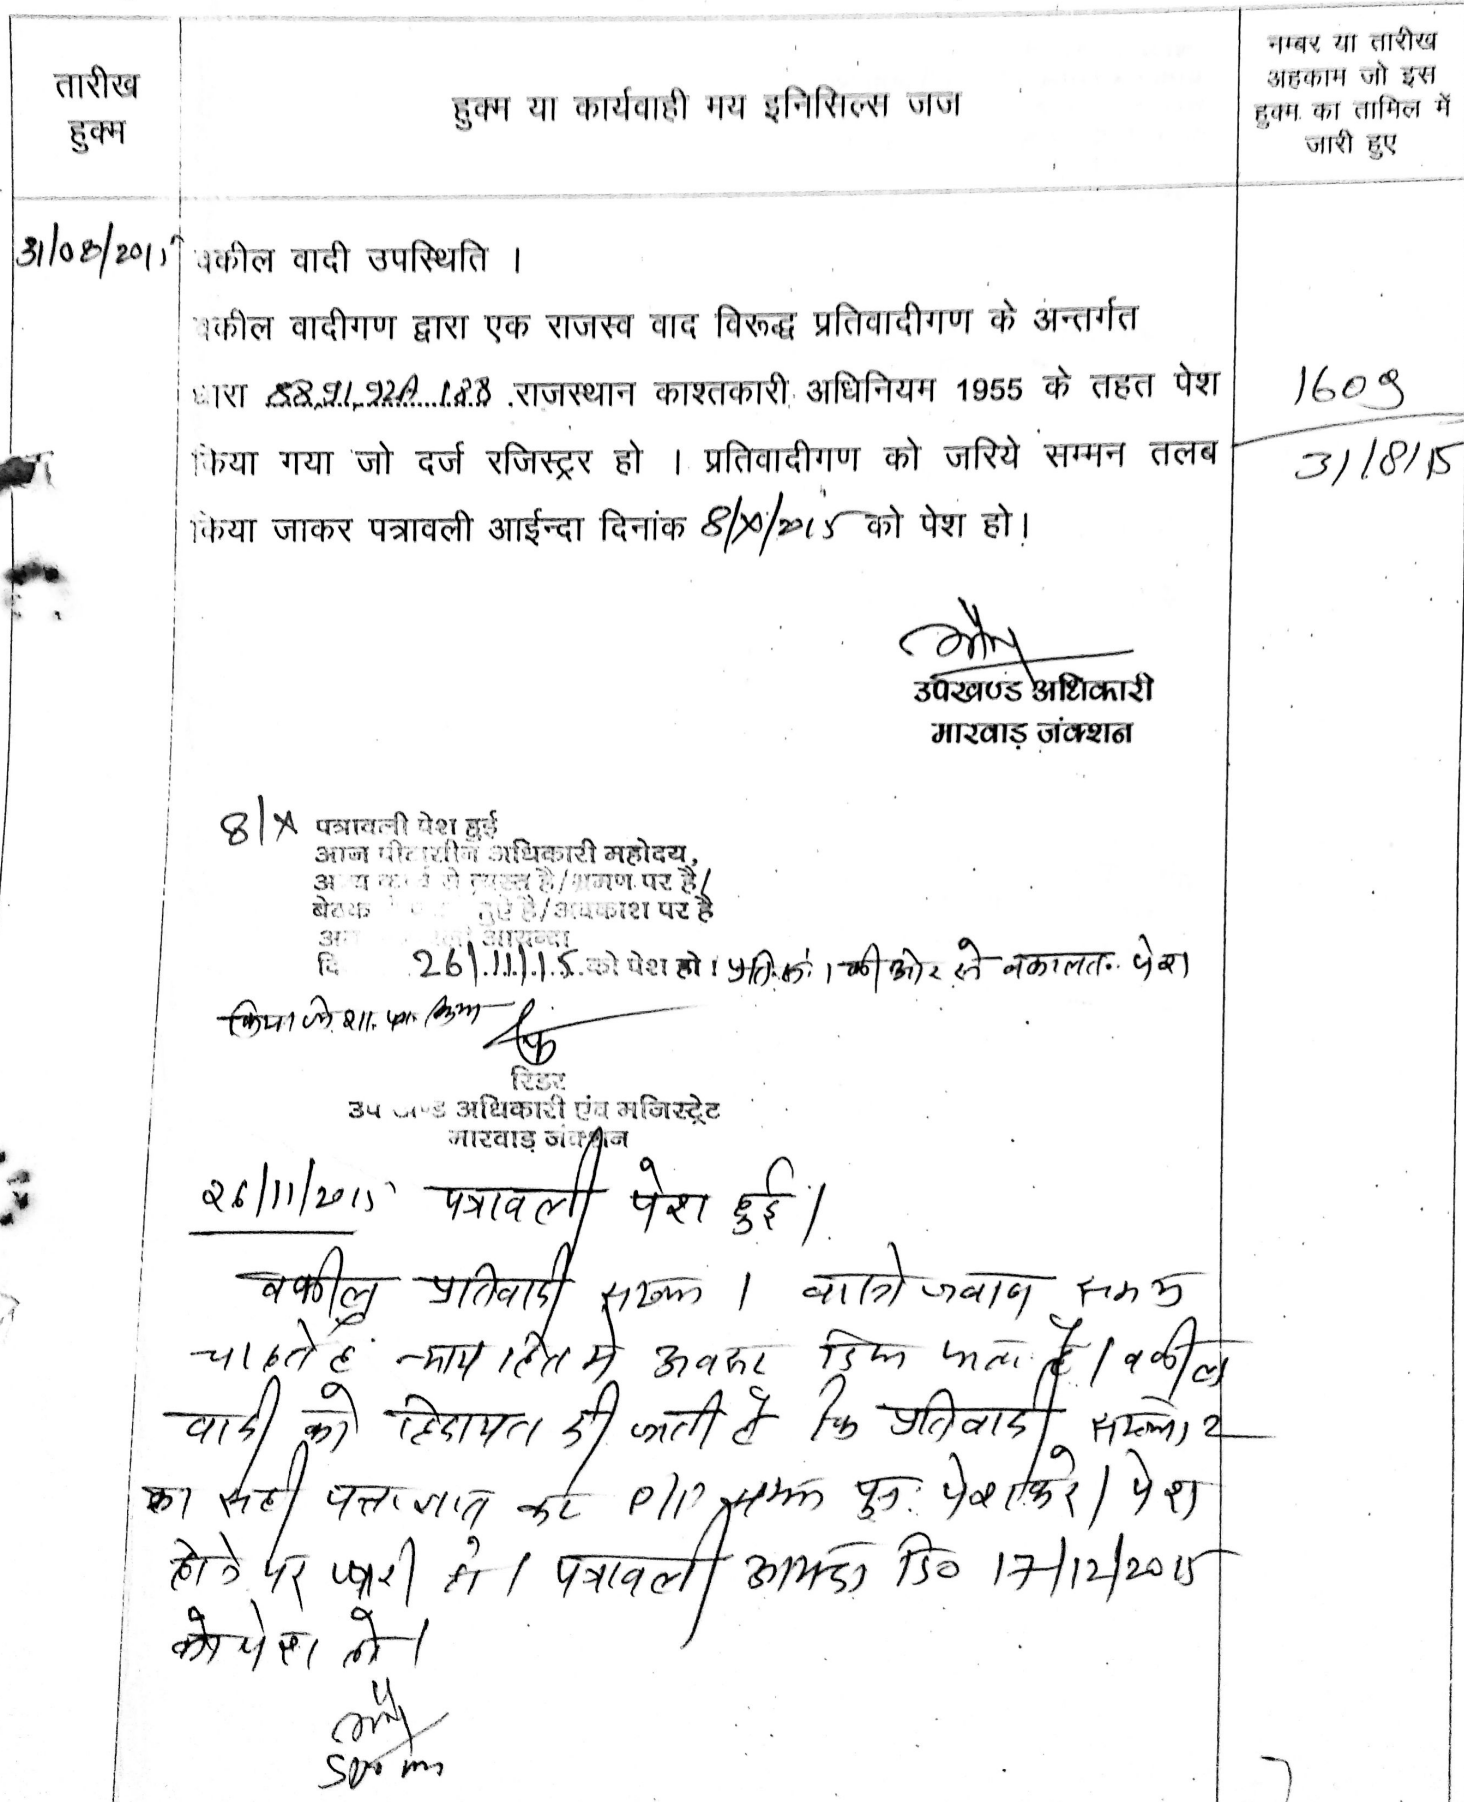 तारीख
हुक्म
हुक्म या कार्यवाही मय इनिसिल्स जज
नम्बर या तारीख
अहकाम जो इस
हुक्म का तामिल में
जारी हुए
31/08/2015 वकील वादी उपस्थिति ।
वकील वादीगण द्वारा एक राजस्व वाद विरूद्ध प्रतिवादीगण के अन्तर्गत
धारा 88,91,92A 188 राजस्थान काश्तकारी अधिनियम 1955 के तहत पेश
किया गया जो दर्ज रजिस्ट्रर हो । प्रतिवादीगण को जरिये सम्मन तलब
किया जाकर पत्रावली आईन्दा दिनांक 8/X/2015 को पेश हो।
1609
31/8/15
उपखण्ड अधिकारी
मारवाड़ जंक्शन
8/X पत्रावली पेश हुई
आज पीठासीन अधिकारी महोदय,
व्यस्त है/भ्रमण पर है/
बैठक हुए है/अवकाश पर है
आयन्दा
दि 26/11/15 को पेश हो। की ओर से वकालत पेश
किया
रिडर
उपखण्ड अधिकारी एंव मजिस्ट्रेट
मारवाड़ जंक्शन
26/11/2015 पत्रावली पेश हुई।
वकील प्रतिवादी । जवाब समय
चाहते है न्याय हित में अवसर दिया जाता है। वकील
वादी को हिदायत दी जाती है कि प्रतिवादी संख्या 2
का सही कर P/F सम्मन पुनः पेश करे। पेश
होने पर जारी हो। पत्रावली आयंदा दि० 17/12/2015
को पेश हो।